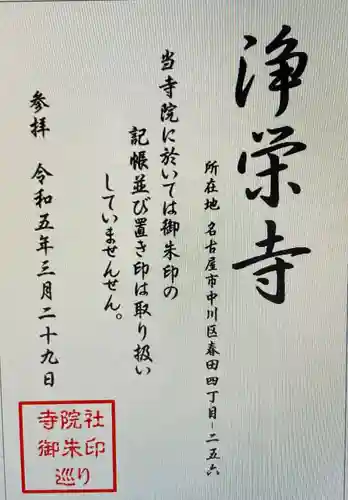 浄栄寺
所在地 名古屋市中川区春田四丁目-二五六
当寺院に於いては御朱印の
記帳並び置き印は取り扱い
していませんせん。
参拝 令和五年三月二十九日
寺院社
御朱印
巡り